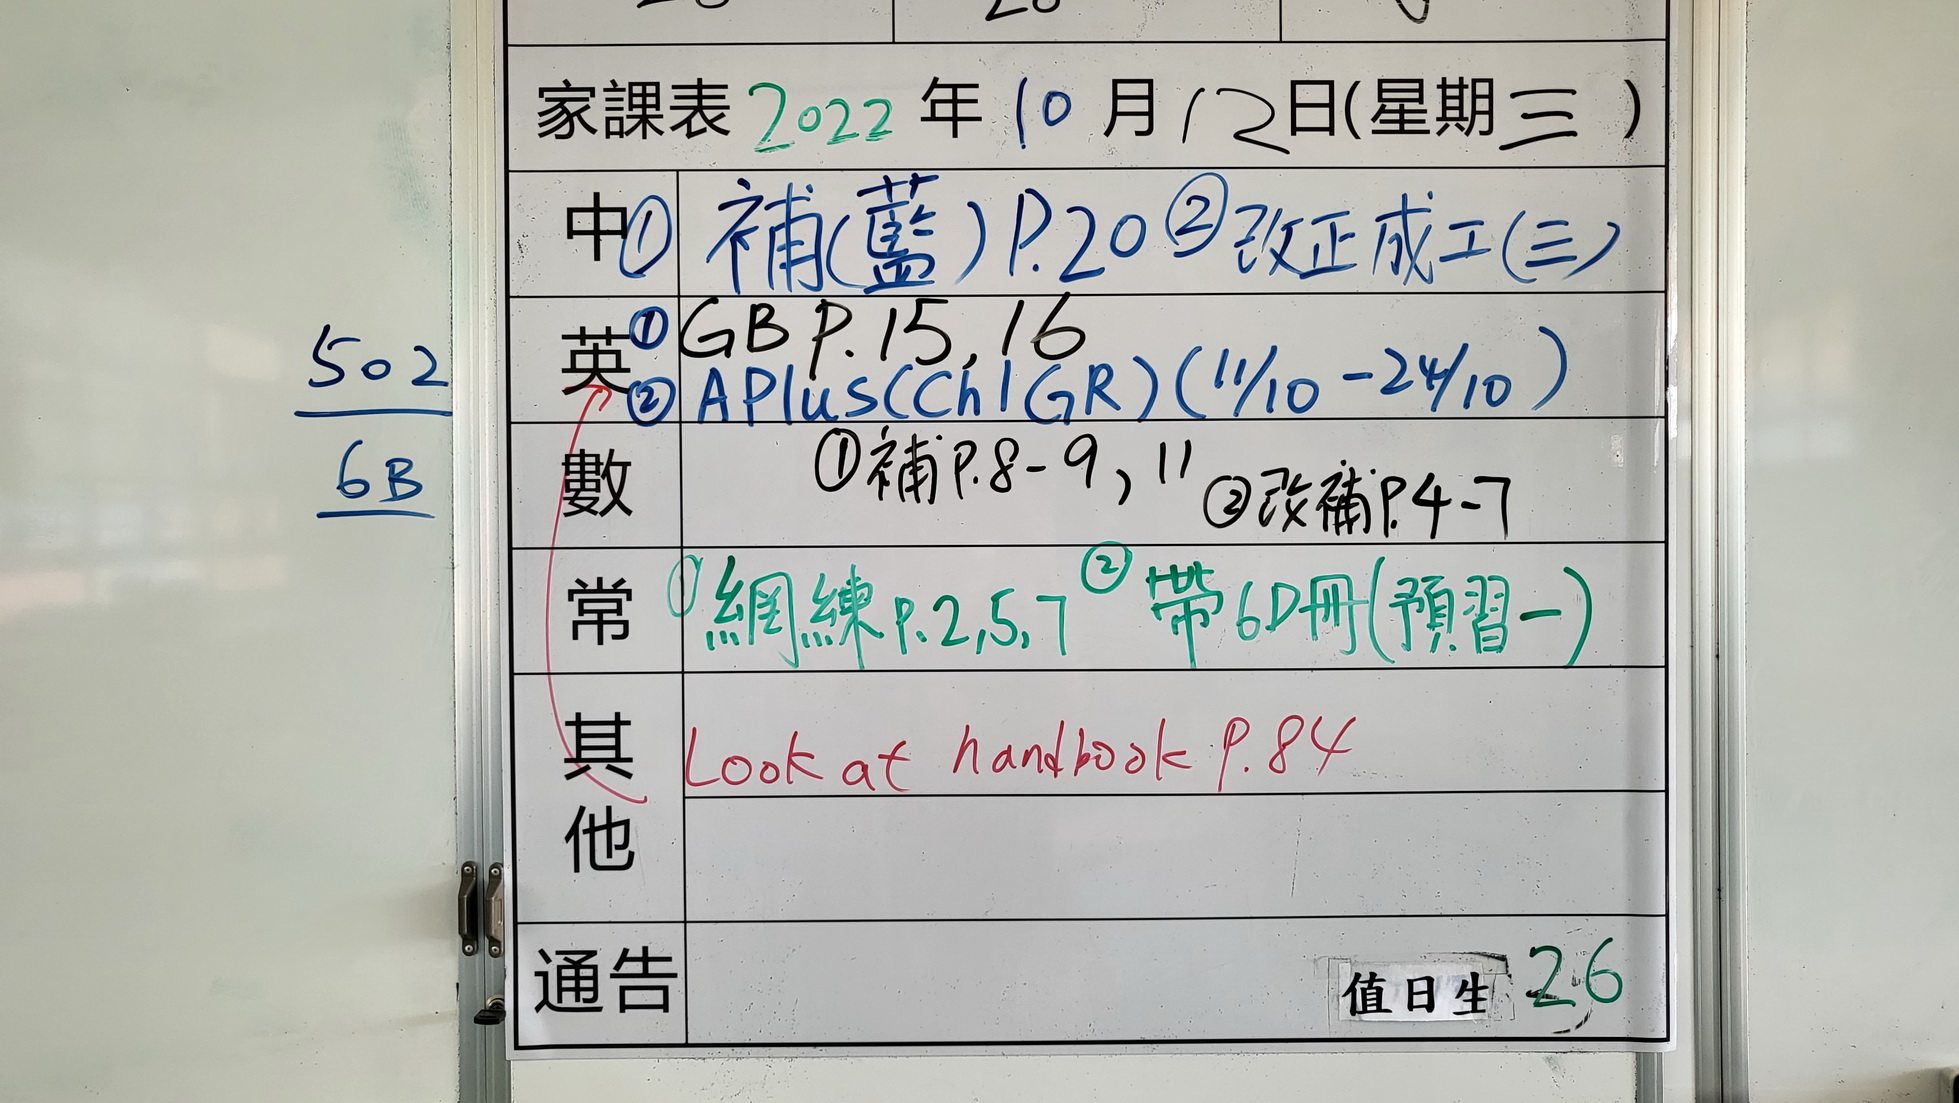 家課表 2022 年 10 月 12 日(星期三)
中 ① 補(藍) P.20 ② 改正成工(三)
英 ① GB P.15, 16
② APlus(Ch1GR)(11/10 - 24/10)
數 ①補P.8-9, 11 ②改補P.4-7
常 ① 網練 P.2,5,7 ② 帶6D冊(預習一)
其他 Look at handbook P.84
通告
值日生 26
502
6B